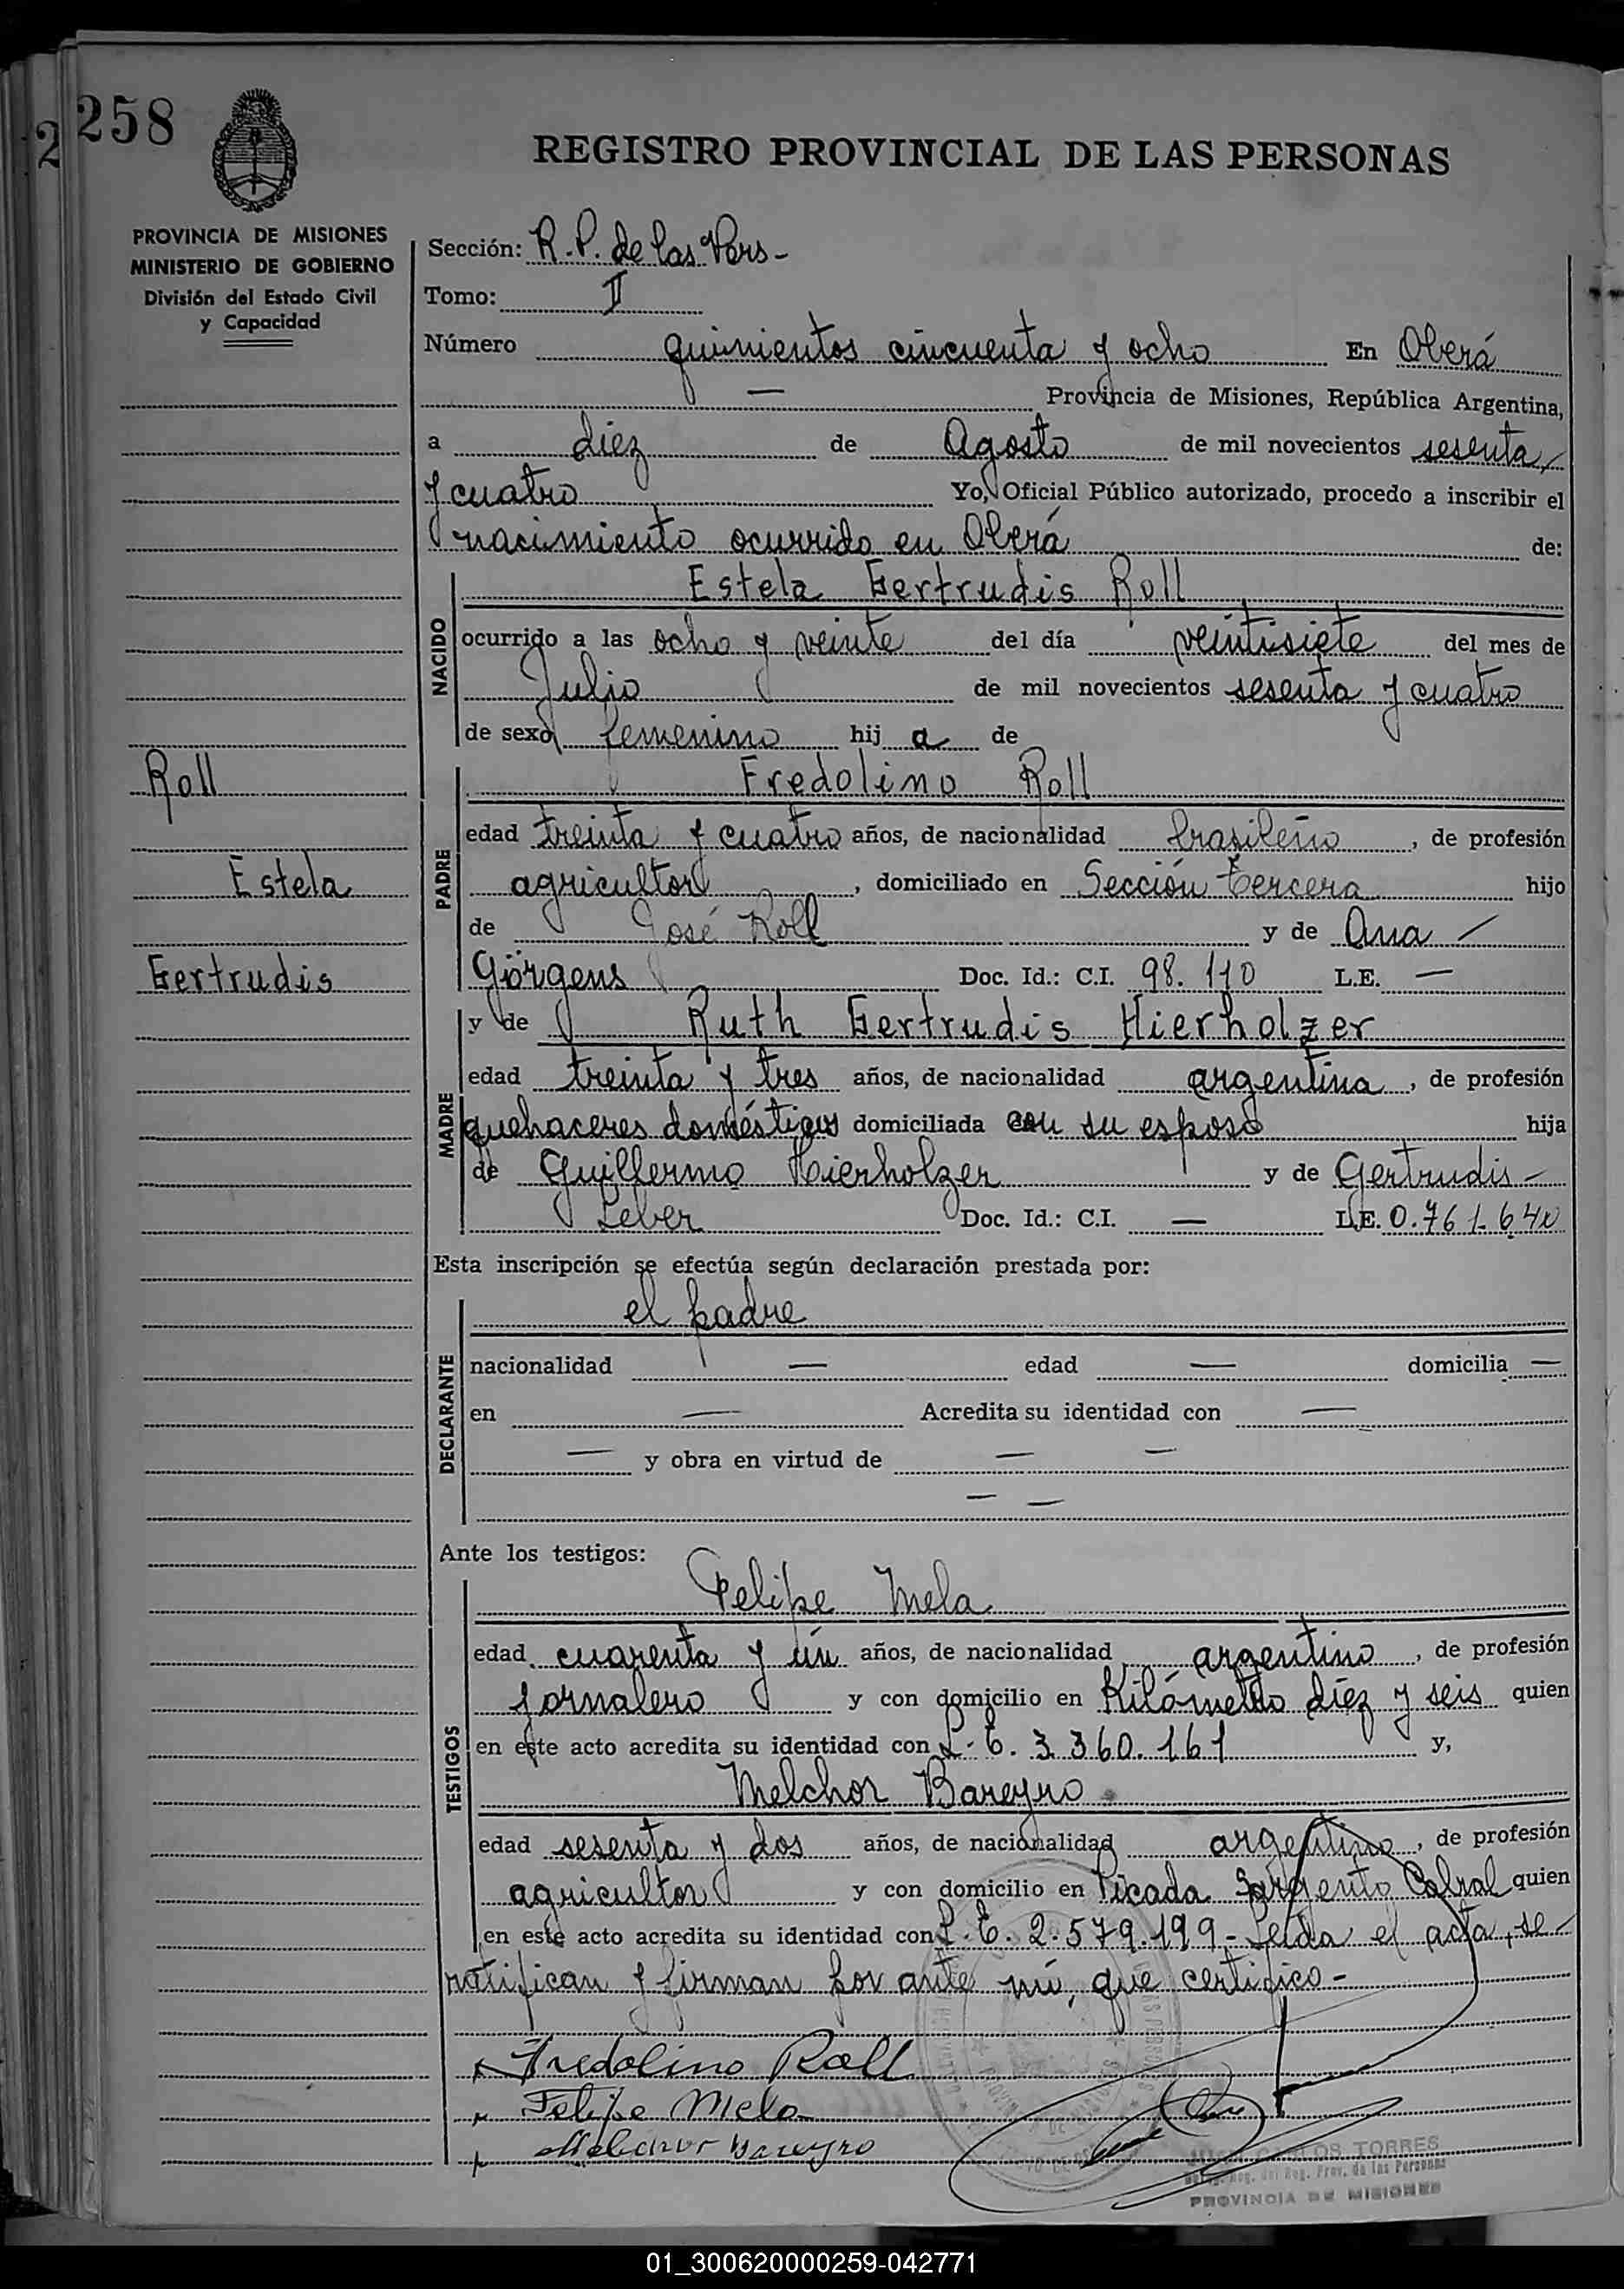 258
2
REGISTRO PROVINCIAL DE LAS PERSONAS
PROVINCIA DE MISIONES
MINISTERIO DE GOBIERNO
División del Estado Civil
y Capacidad
Sección: R.P. de las Pers-
Tomo: II
Número quinientos cincuenta y ocho En Oberá
— Provincia de Misiones, República Argentina,
a diez de Agosto de mil novecientos sesenta
y cuatro Yo, Oficial Público autorizado, procedo a inscribir el
nacimiento ocurrido en Oberá de:
NACIDO
Estela Gertrudis Roll
ocurrido a las ocho y veinte del día veintisiete del mes de
Julio de mil novecientos sesenta y cuatro
de sexo femenino hij a de
Roll
Estela
Gertrudis
PADRE
Fredolino Roll
edad treinta y cuatro años, de nacionalidad brasileño, de profesión
agricultor, domiciliado en Sección tercera hijo
de José Roll y de Ana
Görgens Doc. Id.: C.I. 98.110 L.E. —
MADRE
y de Ruth Gertrudis Hierholzer
edad treinta y tres años, de nacionalidad argentina, de profesión
quehaceres domésticos domiciliada con su esposo hija
de Guillermo Hierholzer y de Gertrudis-
Leber Doc. Id.: C.I. — L.E. 0.761.640
Esta inscripción se efectúa según declaración prestada por:
DECLARANTE
el padre
nacionalidad — edad — domicilia —
en — Acredita su identidad con —
— y obra en virtud de — —
— —
Ante los testigos:
TESTIGOS
Felipe Mela
edad cuarenta y ún años, de nacionalidad argentino, de profesión
jornalero y con domicilio en Kilómetro diez y seis quien
en este acto acredita su identidad con L.E. 3.360.161 y,
Melchor Bareyro
edad sesenta y dos años, de nacionalidad argentino, de profesión
agricultor y con domicilio en Picada Sargento Cabral quien
en este acto acredita su identidad con L.E. 2.579.199- Leída el acta, se
ratifican y firman por ante mí, que certifico-
Fredolino Roll
Felipe Melo
Melchor Bareyro
CARLOS TORRES
Reg. Prov. de las Personas
PROVINCIA DE MISIONES
01_300620000259-042771